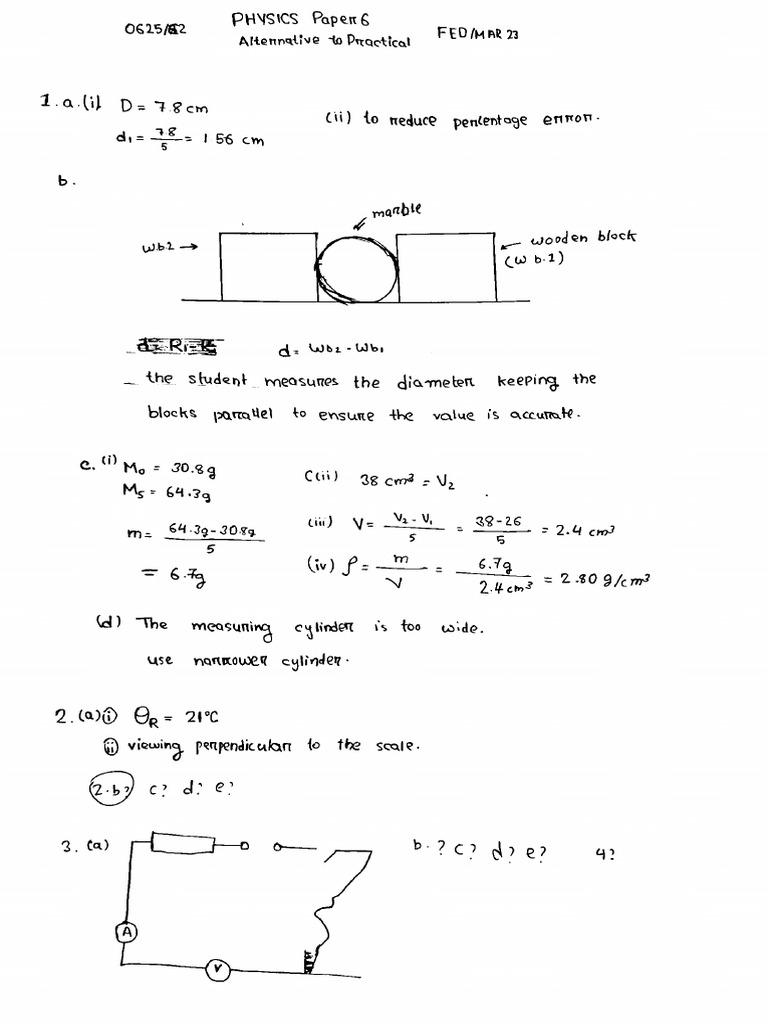 PHYSICS Paper 6
0625/62
Alternative to Practical
FED/MAR 23
1. a. (i) D = 7.8 cm
d₁ = 7.8/5 = 1 56 cm
(ii) to reduce percentage error.
b.
marble
w.b.2 →
← wooden block
(w b.1)
d = Wb₂ - Wb₁
_ the student measures the diameter keeping the
blocks parallel to ensure the value is accurate.
c. (i) M₀ = 30.8g
M₅ = 64.3g
m = 64.3g-30.8g/5
= 6.7g
C(ii) 38 cm³ = V₂
(iii) V = V₂ - V₁/5 = 38-26/5 = 2.4 cm³
(iv) ρ = m/V = 6.7g/2.4cm³ = 2.80 g/cm³
(d) The measuring cylinder is too wide.
use narrower cylinder.
2. (a) (i) θR = 21°C
(ii) viewing perpendicular to the scale.
2.b? c? d? e?
3. (a)
A
V
b. ? c? d? e? 4?